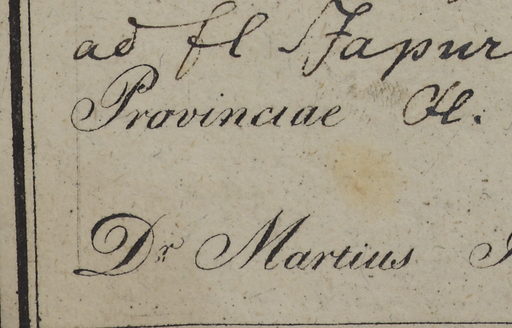 ad fl Japur
Provinciae
Dr Martius